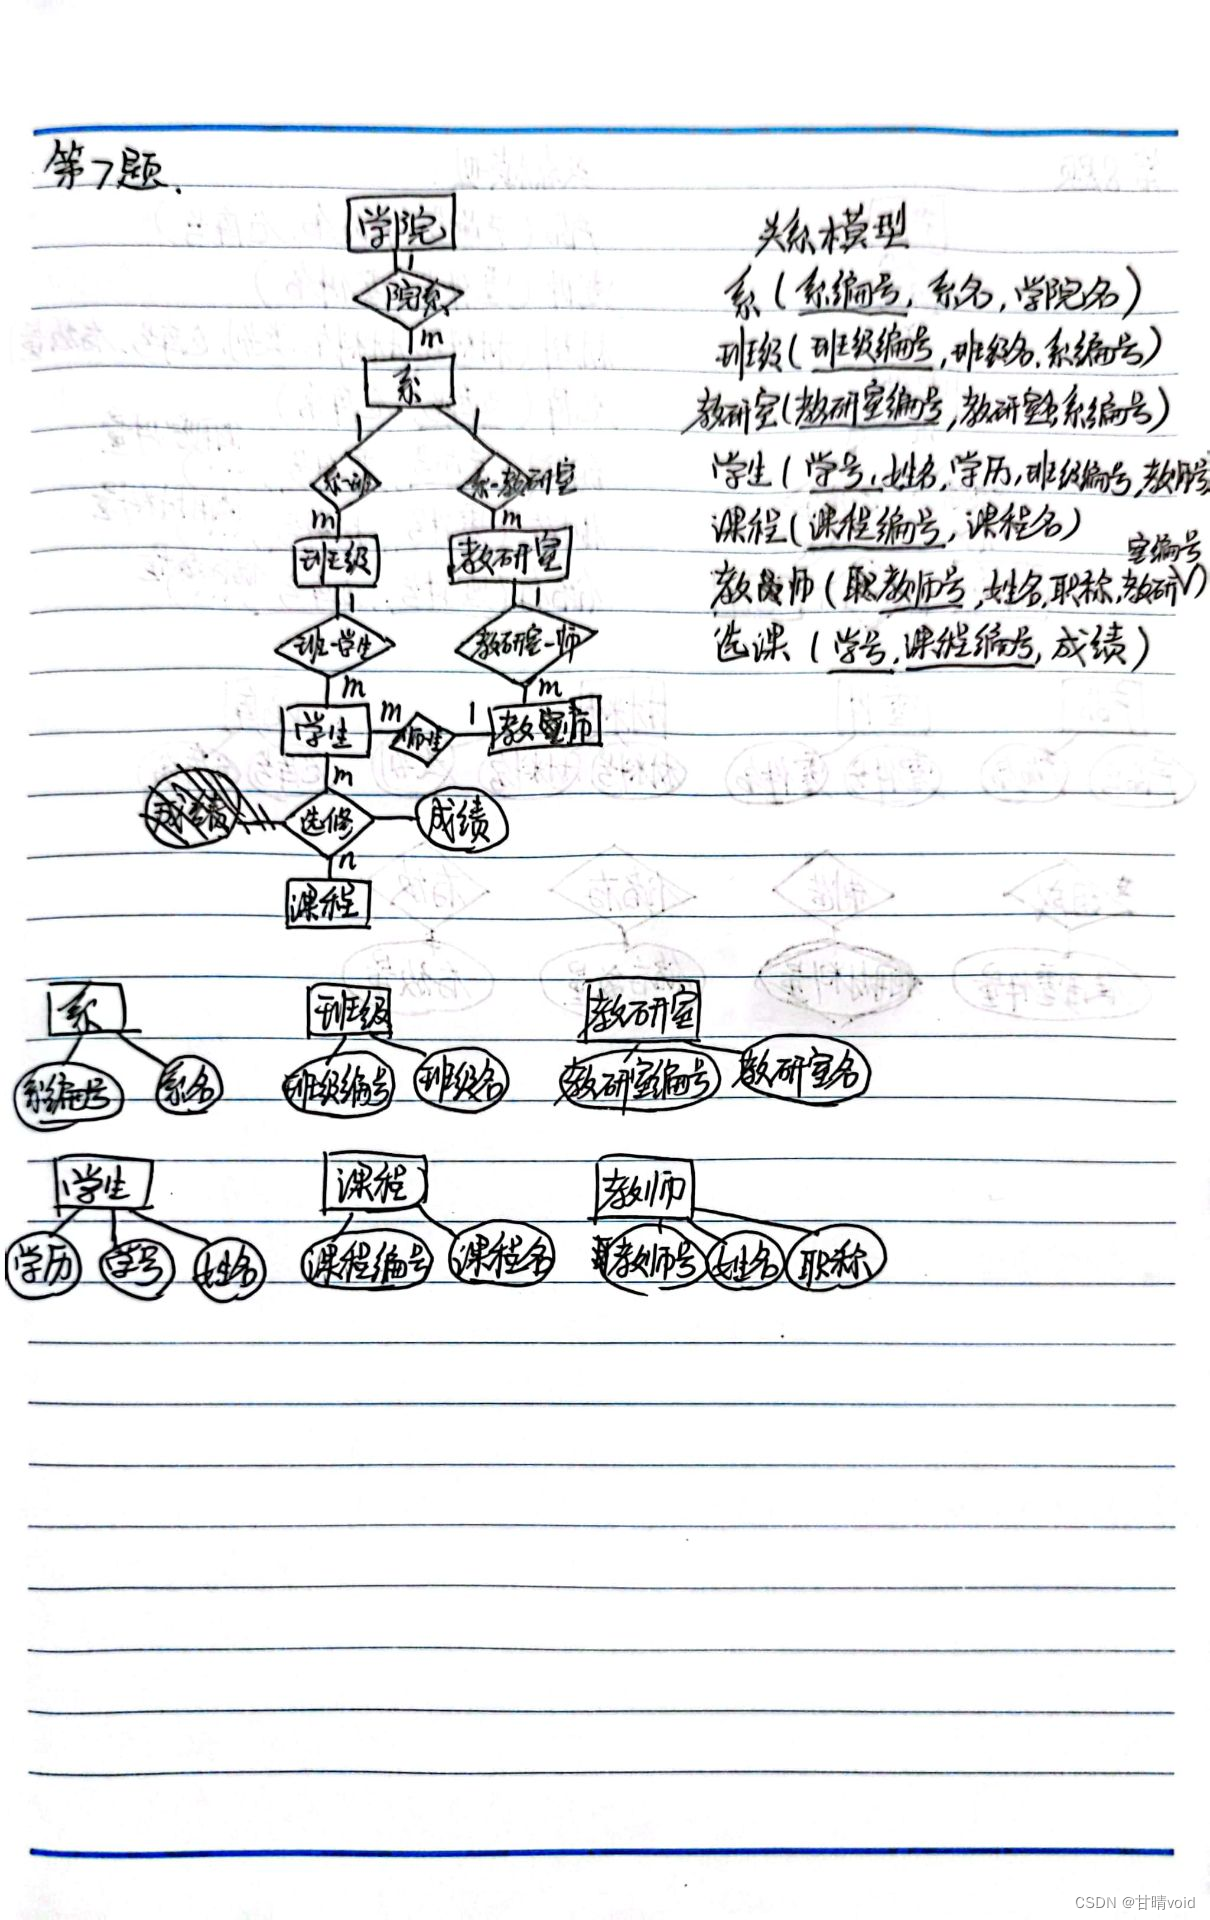 第7题.
学院
1
院系
m
系
1 1
系-班 系-教研室
m m
班级 教研室
1 1
班-学生 教研室-师
m m
学生 m 师生 1 教师
m
选修 成绩
n
课程
关系模型
系(系编号,系名,学院名)
班级(班级编号,班级名,系编号)
教研室(教研室编号,教研室名,系编号)
学生(学号,姓名,学历,班级编号,教师号
课程(课程编号,课程名)
教师(教师号,姓名,职称,教研室编号)
选课(学号,课程编号,成绩)
系 班级 教研室
系编号 系名 班级编号 班级名 教研室编号 教研室名
学生 课程 教师
学历 学号 姓名 课程编号 课程名 教师号 姓名 职称
CSDN @甘晴void